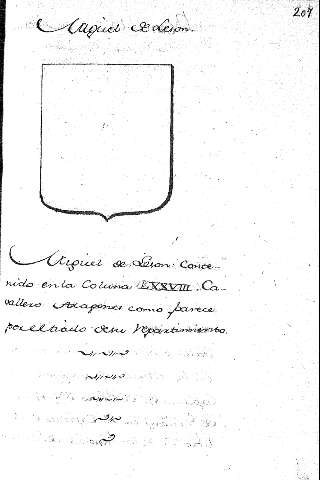 207
Miguel de Leson.
Miguel de Leson: Conte-
nido en la Coluna LXXVIII. Ca-
vallero Aragones como parece
por el dicho Repartimiento.